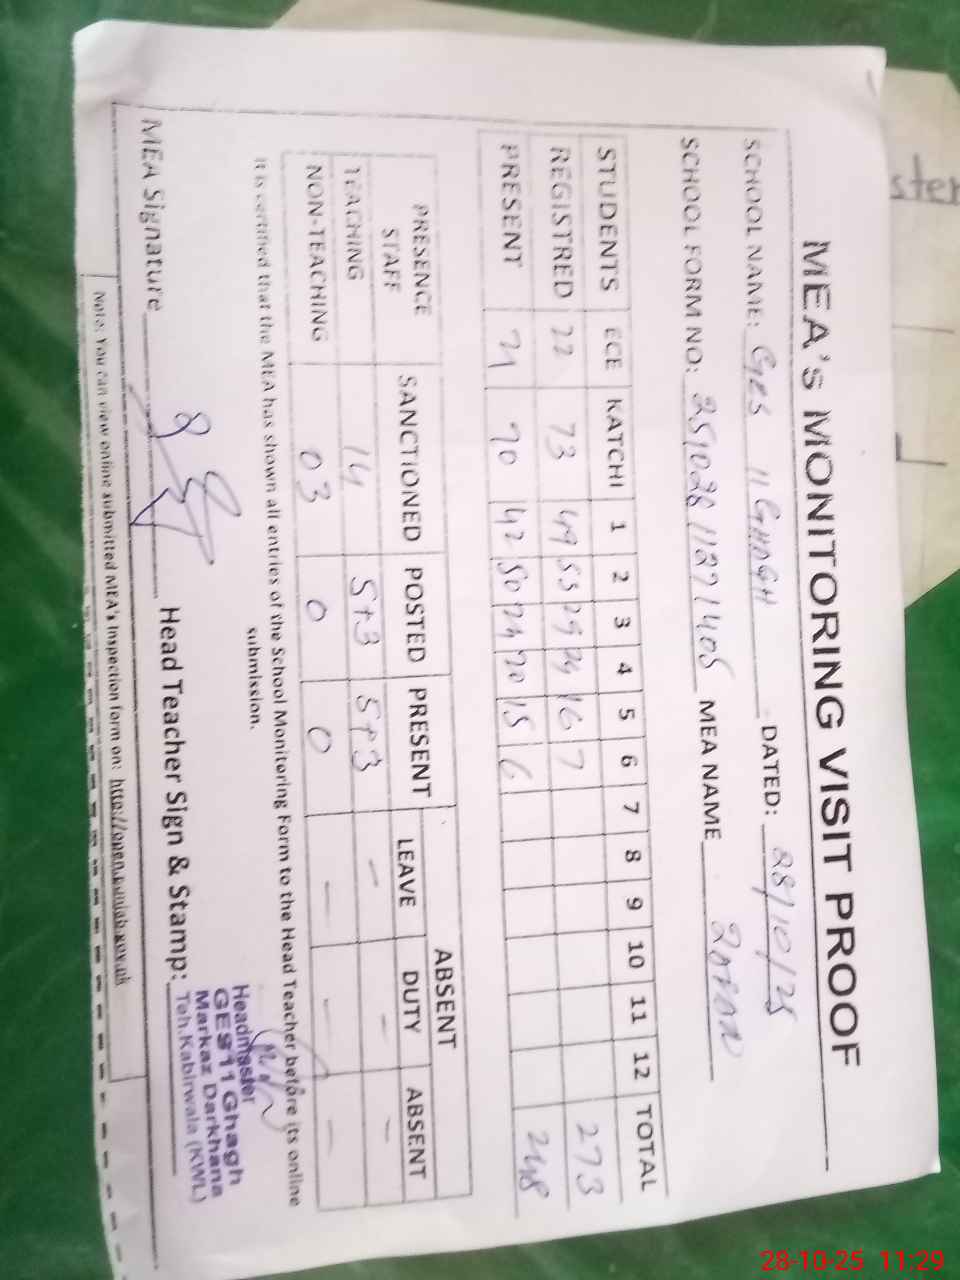 MEA'S MONITORING VISIT PROOF
SCHOOL NAME: GES 11 GHAGH DATED: 28/10/25
SCHOOL FORM NO: MEA NAME
STUDENTS ECE KATCHI 1 2 3 4 5 6 7 8 9 10 11 12 TOTAL
REGISTRED 22 73 49 53 29 24 16 7 273
PRESENT 21 70 42 50 24 20 15 6 248
PRESENCE STAFF SANCTIONED POSTED PRESENT ABSENT
LEAVE DUTY ABSENT
TEACHING 14 5+3 5+3 - - -
NON-TEACHING 03 0 0 - - -
It is certified that the MEA has shown all entries of the School Monitoring Form to the Head Teacher before its online
submission.
MEA Signature Head Teacher Sign & Stamp:
Headmaster
GES 11 Ghagh
Markaz Darkhana
Teh.Kabirwala (KWL)
Note: You can view online submitted MEA's Inspection form on: http://open.punjab.gov.pk
ster
28-10-25 11:29